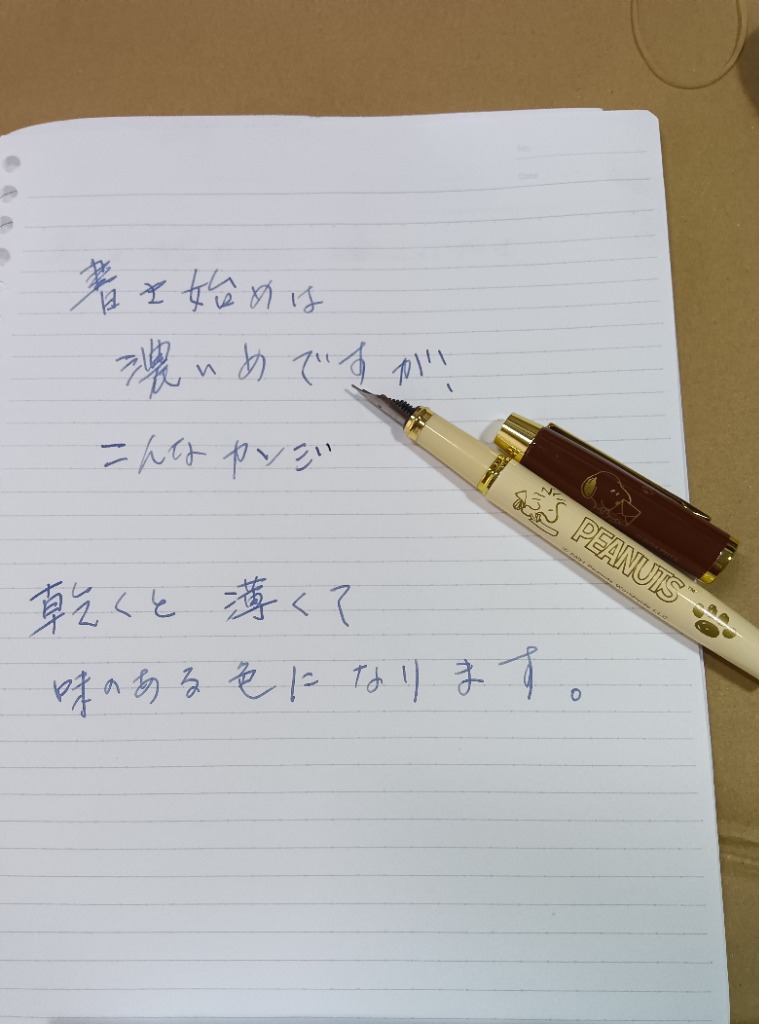 書き始めは
濃いめですが、
こんなカンジ
乾くと 薄くて
味のある色になります。
PEANUTS™